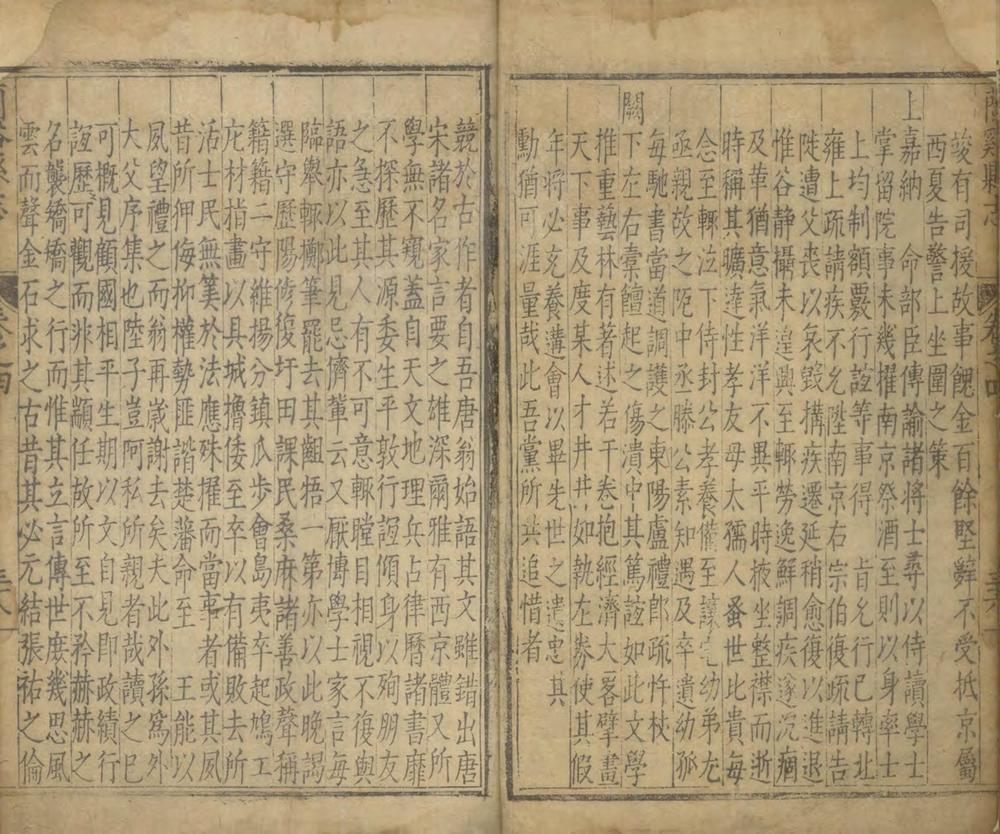 竣有司援故事餽金百餘堅辭不受抵京屬
西夏告警上坐圍之策
上嘉納 命部臣傳諭諸將士尋以侍讀學士
掌留院事未幾擢南京祭酒至則以身率士
上均制額覈行誼等事得 旨允行已轉北
雍上疏請疾不允陞南京右宗伯復疏請告
陡遭父喪以哀毀搆疾遷延稍愈復以進退
惟谷靜攝未遑興至輒勞逸鮮調疾遂沉痼
及革猶意氣洋洋不異平時掖坐整襟而逝
時稱其曠達性孝友母太孺人蚤世比貴每
念至輒泣下侍封公孝養懽至讓宅幼弟尤
亟親故之阨中丞滕公素知遇及卒遺幼孤
每馳書當道調護之東陽盧禮郎疏忤杖
闕下左右橐饘起之傷潰中其篤誼如此文學
推重藝林有著述若干卷抱經濟大畧擘畫
天下事及度某人才井井如執左券使其假
年將必充養遘會以畢先世之遺忠其
勳猶可涯量哉此吾黨所共追惜者
蘭谿縣志
競於古作者自吾唐翁始語其文雖錯出唐
宋諸名家言要之雄深爾雅有西京體又所
學無不窺蓋自天文地理兵占律曆諸書靡
不探歷其源委生平敦行誼傾身以殉朋友
之急至其人有不可意輒瞠目相視不復與
語亦以此見忌儕輩云又厭博學士家言每
臨舉輒擲筆罷去其齟牾一第亦以此晚謁
選守歷陽修復圩田課民桑麻諸善政聲稱
籍籍二守維揚分鎮瓜步會島夷卒起鳩工
庀材指畫以具城擼倭至卒以有備敗去所
活士民無筭於法應殊擢而當事者或其風
昔所狎侮抑權勢匪諧楚藩命至 王能以
夙望禮之而翁再歲謝去矣夫此外孫為外
大父序集也陸子豈阿私所親者哉讀之已
可概見顧國相平生期以文自見即政績行
誼歷可觀而非其顓任故所至不矜赫赫之
名襲矯矯之行而惟其立言傳世庶幾思風
雲而聲金石求之古昔其必元結張祐之倫